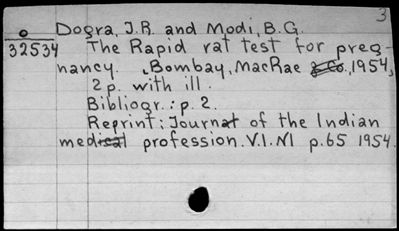 3
o Dogra, J.R. and Modi, B.G.
32534 The Rapid rat test for preg-
nancy. Bombay, MacRae & Co., 1954,
2p. with ill.
Bibliogr.: p.2.
Reprint: Journal of the Indian
medical profession. V.1. N1 p.65 1954.